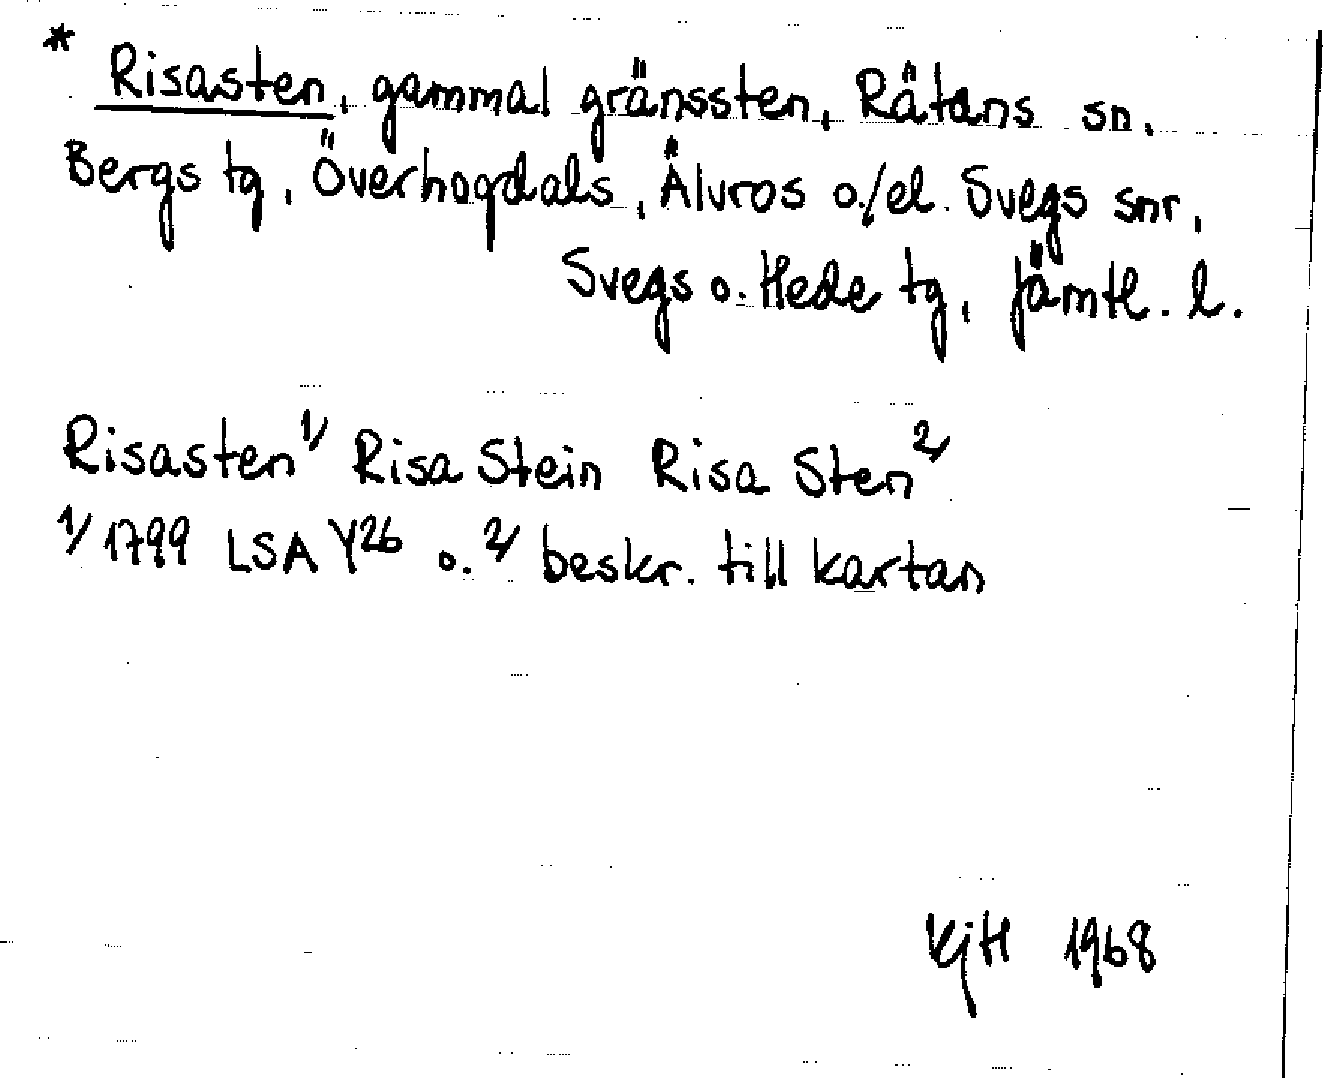 * Risasten, gammal gränssten, Råtans sn,
Bergs tg, Överhogdals, Älvros o./el. Svegs snr,
Svegs o. Hede tg, Jämtl. l.
Risasten 1/ Risa Stein Risa Sten 2/
1/ 1799 LSA Y26 o. 2/ beskr. till kartan
KjH 1968